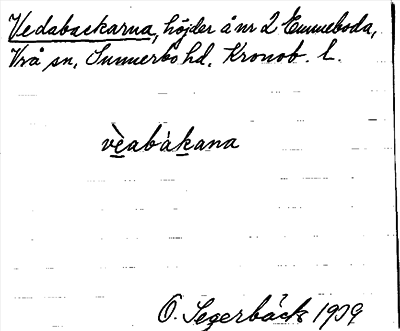 Vedabackarna, höjder å nr 2 Emmeboda,
Vrå sn, Sunnerbo hd, Kronob. l.
vèabákana
O. Segerbäck 1909